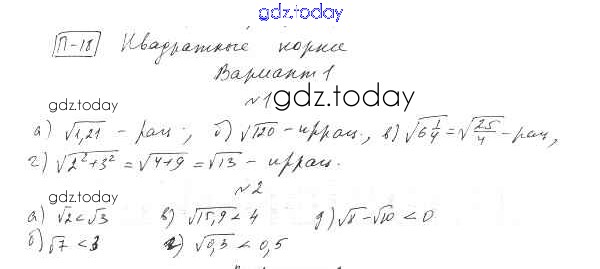 gdz.today
П-18 Квадратные корни
Вариант 1
№1
gdz.today
gdz.today
а) √1,21 - рац., б) √120 - иррац., в) √6 1/4 = √25/4 - рац,
г) √2²+3² = √4+9 = √13 - иррац.
№2
gdz.today
а) √2 < √3 в) √15,9 < 4 д) √8 - √10 < 0
б) √7 < 3 г) √0,3 < 0,5